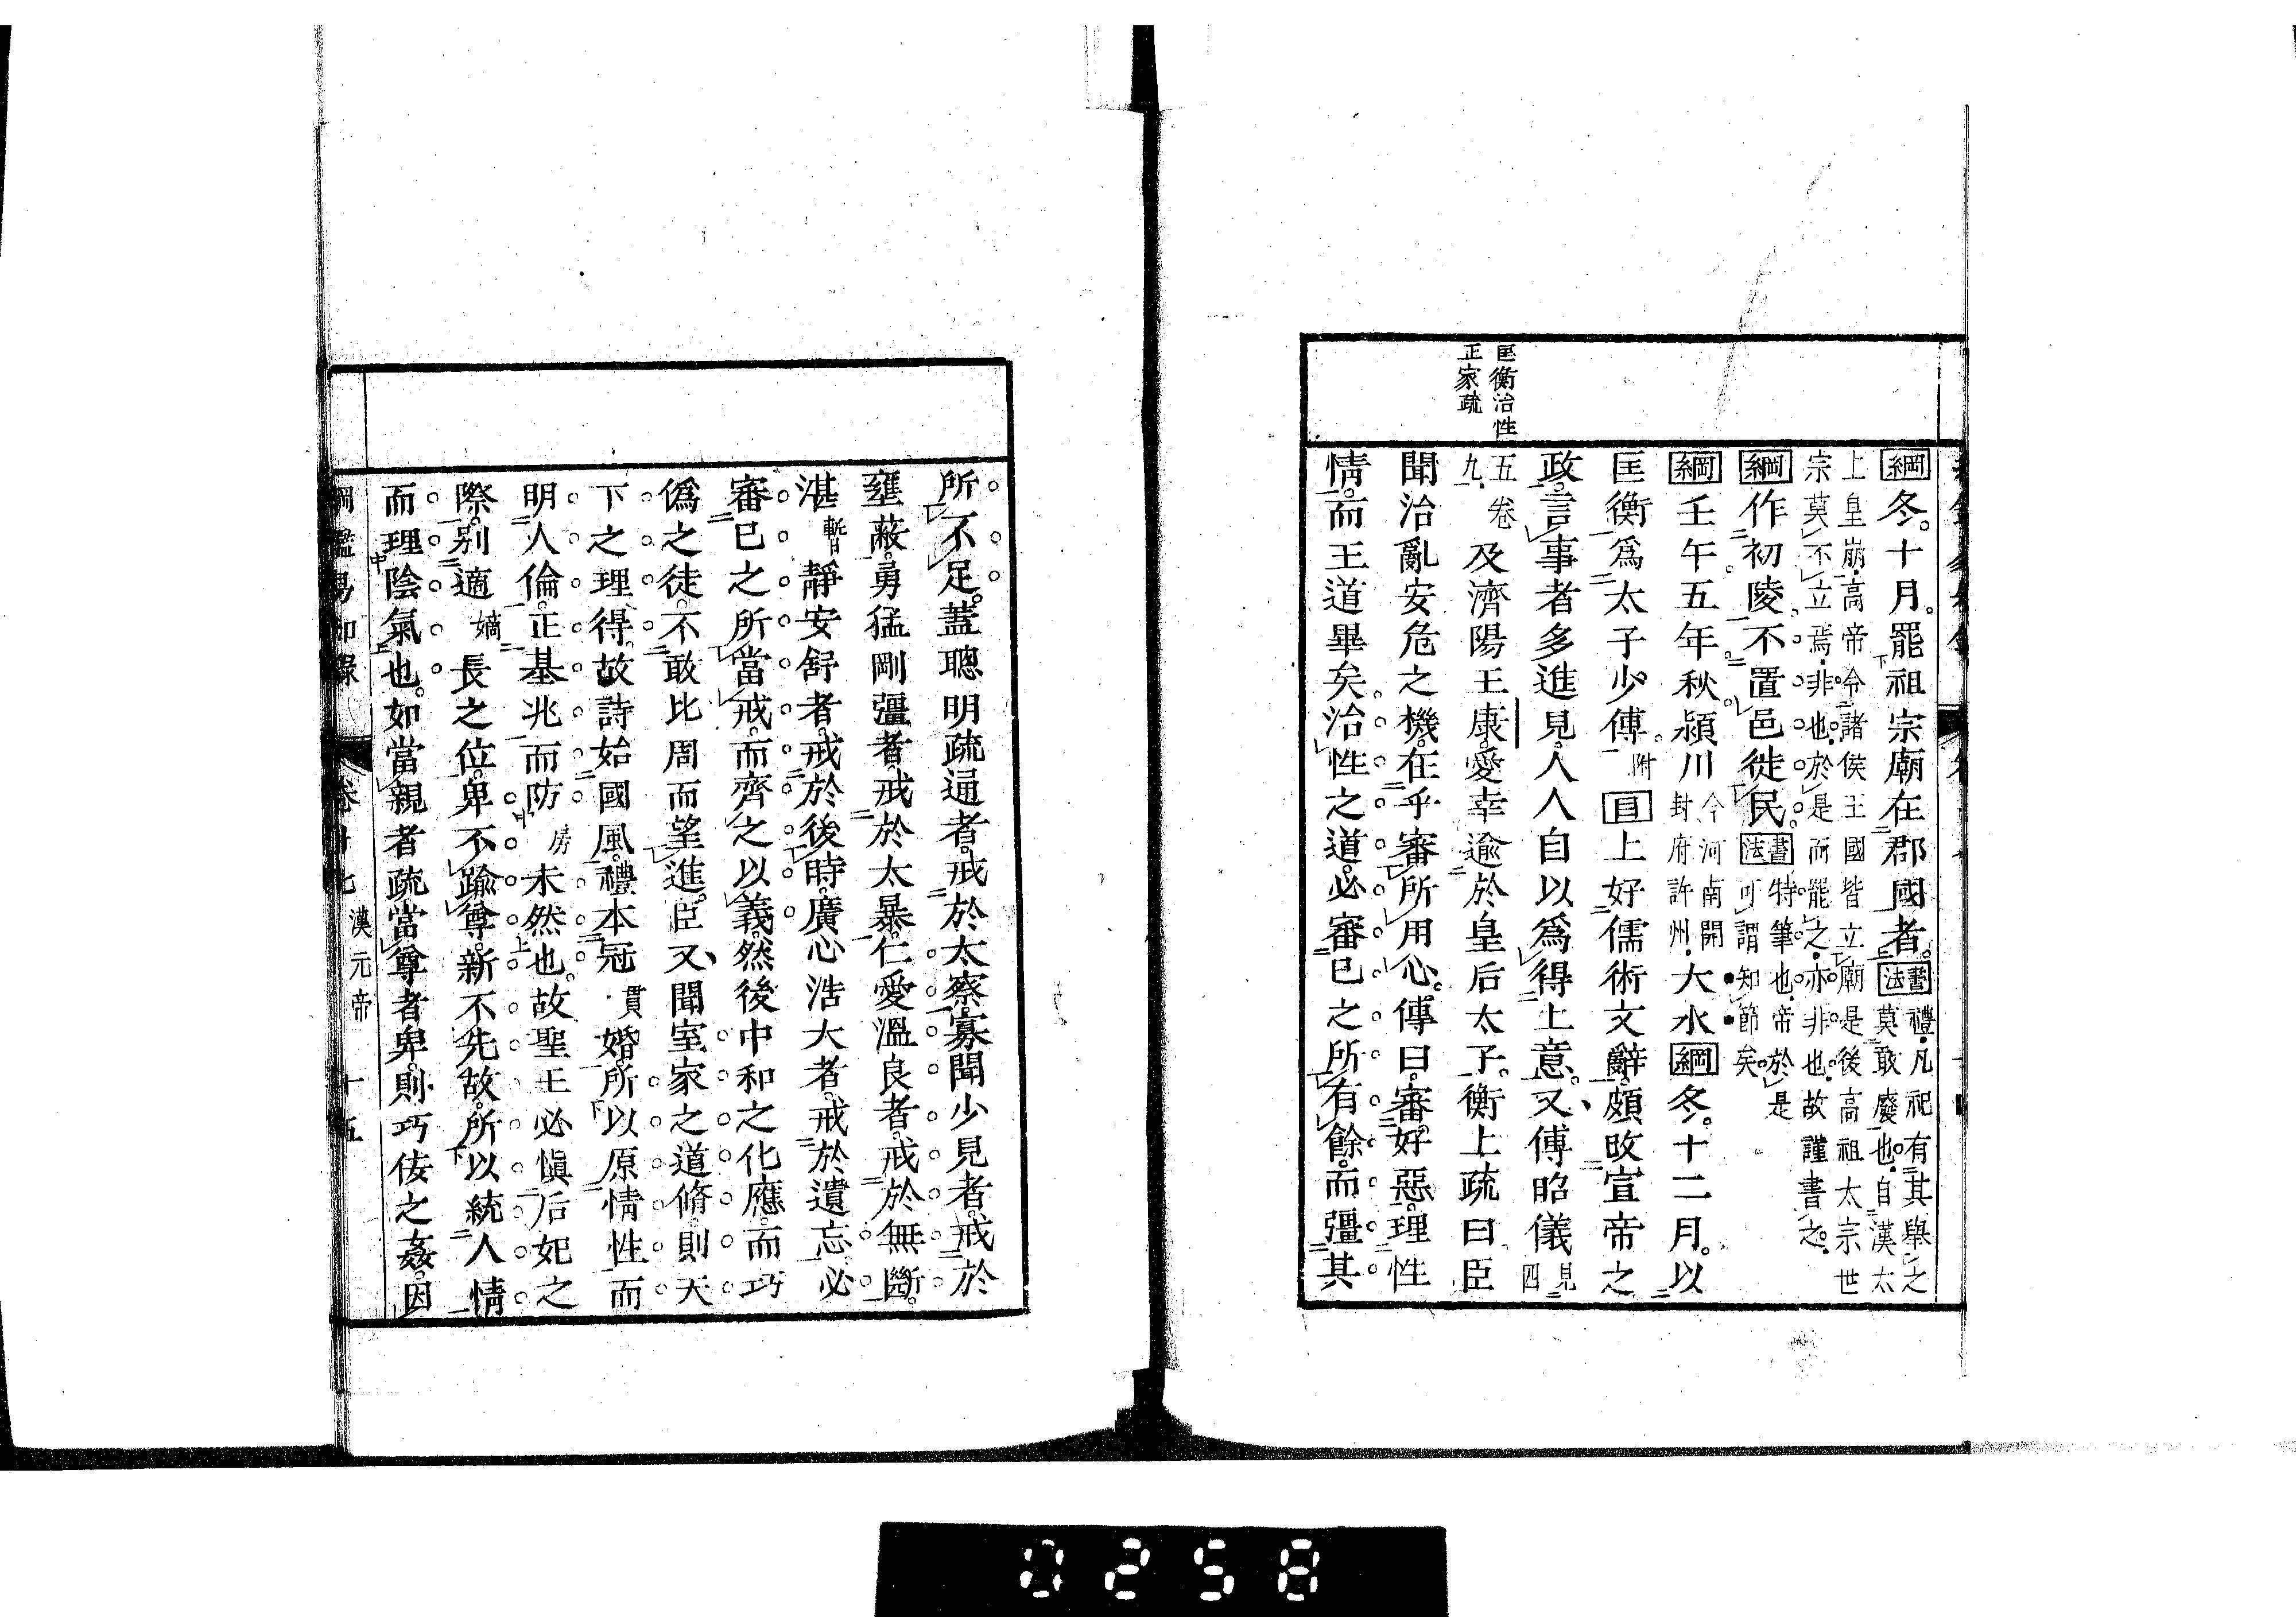 匡衡治性
正家疏
綱冬。十月。罷祖宗廟在郡國者。書法禮。凡祀有其舉之莫敢廢也。自漢太
上皇崩。高帝令諸侯王國皆立廟是後高祖太宗世
宗莫不立焉。非也。於是而罷之。亦非也。故謹書之。
綱作初陵。不置邑徙民。書法特筆也。帝於是可謂知節矣。
綱壬午五年秋。潁川今河南開封府許州。大水綱冬。十二月。以
匡衡爲太子少傅。附目上好儒術文辭。頗改宣帝之
政。言事者多進見。人人自以爲得上意。又傅昭儀見四
五卷九。及濟陽王康。愛幸逾於皇后太子。衡上疏曰臣
聞治亂安危之機。在乎審所用心。傳曰。審好惡。理性
情。而王道畢矣。治性之道。必審已之所有餘。而彊其
所不足。蓋聰明疏逼者。戒於太察。寡聞少見者。戒於
壅蔽。勇猛剛彊者。戒於太暴。仁愛溫良者。戒於無斷。
湛暫靜安舒者。戒於後時。廣心浩大者。戒於遺忘。必
審已之所當戒。而齊之以義。然後中和之化應。而巧
僞之徒。不敢比周而望進。臣又聞室家之道脩。則天
下之理得。故詩始國風。禮本冠貫婚。所以原情性而
明人倫。正基兆而防房未然也。故聖王必愼后妃之
際。別適嫡長之位。卑不踰尊。新不先故。所以統人情
而理陰氣也。如當親者疏。當尊者卑。則巧佞之姦。因
綱鑑易知錄 卷十七 漢元帝 十五
0258